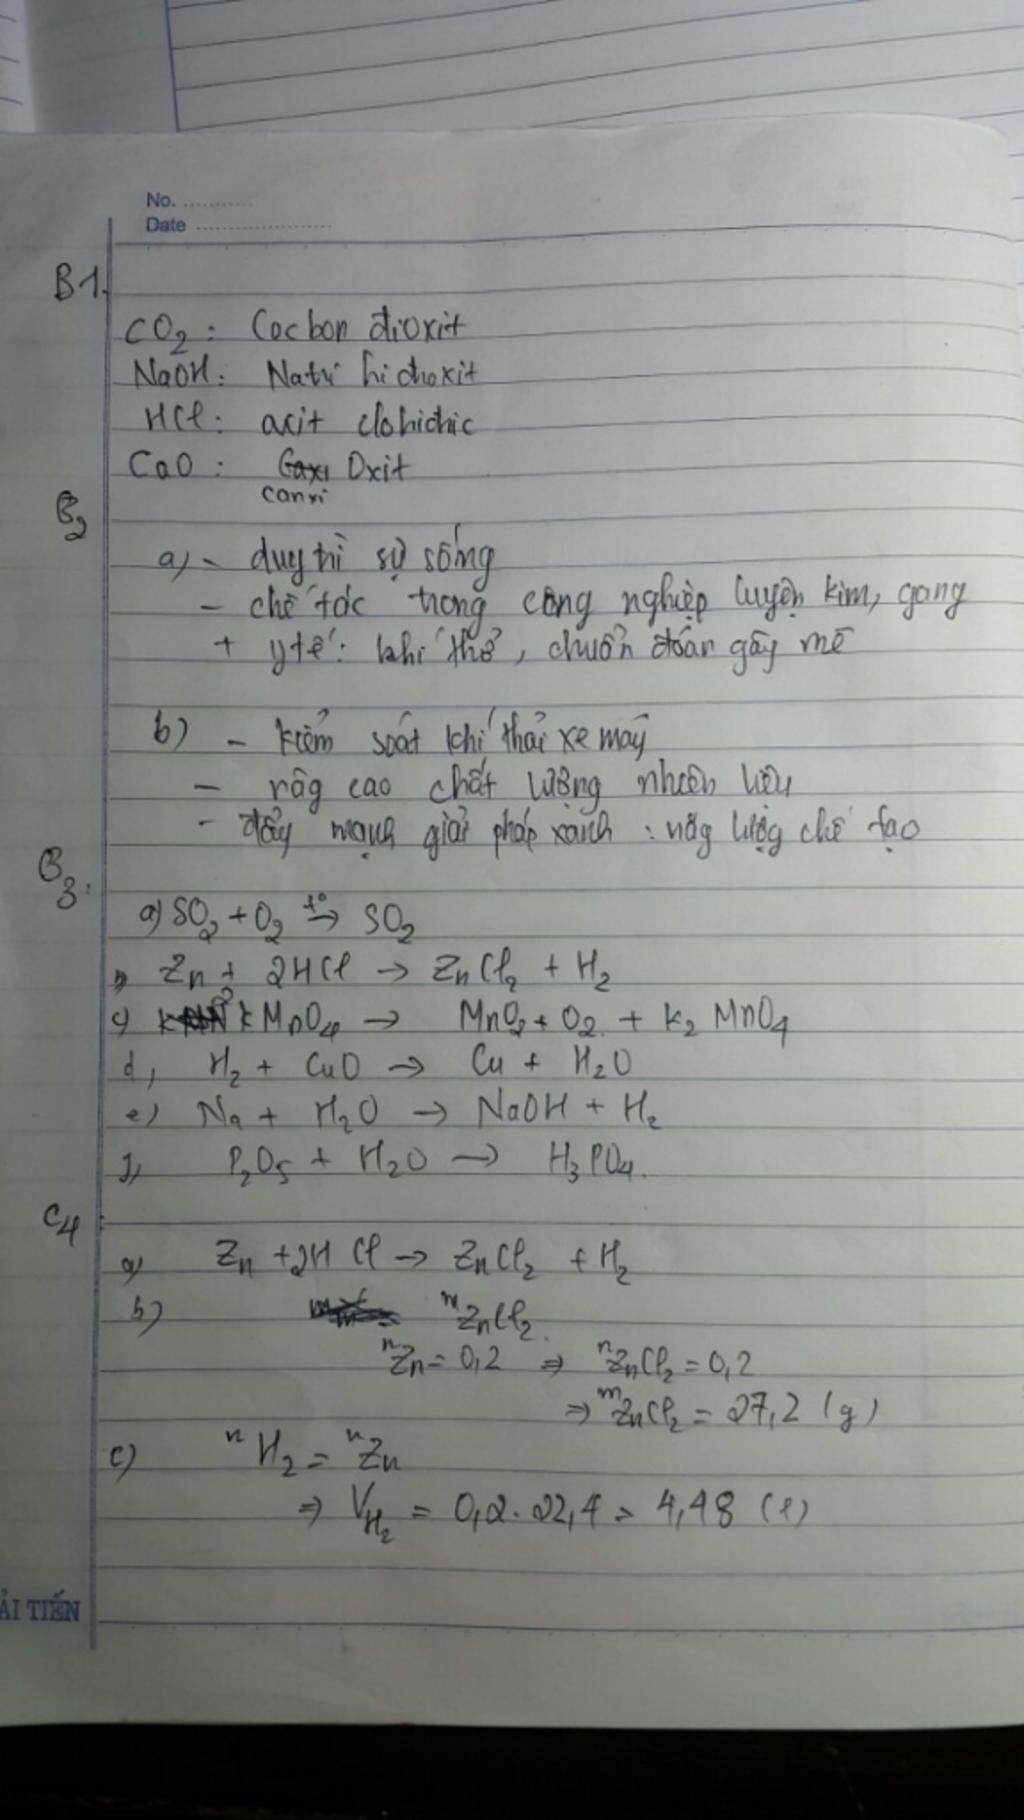 No. ............
Date ........................
B1.
CO2 : Cacbon đioxit
NaOH: Natri hiđroxit
HCl: axit clohiđric
CaO : Oxit
canxi
B2
a) - duy trì sự sống
- chế tác trong công nghiệp luyện kim, gang
+ y tế: khí thở, chuẩn đoán gây mê
b) - kiểm soát khí thải xe máy
- nâg cao chất lượng nhiên liệu
- đẩy mạnh giải pháp xanh : năg lượg chế tạo
B3:
a) SO2 + O2 t°→ SO2
b) Zn + 2HCl → ZnCl2 + H2
c) KMnO4 → MnO2 + O2 + K2MnO4
d, H2 + CuO → Cu + H2O
e) Na + H2O → NaOH + H2
P2O5 + H2O → H3PO4.
C4:
a) Zn + 2HCl → ZnCl2 + H2
b) mZnCl2.
nZn = 0,2 ⇒ nZnCl2 = 0,2
⇒ mZnCl2 = 27,2 (g)
c) nH2 = nZn
⇒ VH2 = 0,2 . 22,4 = 4,48 (l)
ẢI TIẾN